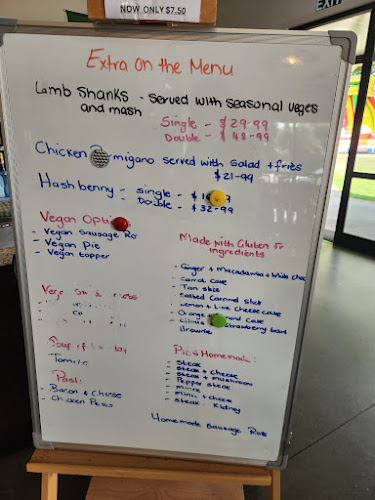 NOW ONLY $7.50
EXIT
Extra on the Menu
Lamb Shanks - Served with Seasonal veges
and mash
Single - $29-99
Double - $48-99
Chicken migano served with Salad + fries
$21-99
Hashbenny - Single - $1
Double - $32-99
Vegan Opti
- Vegan Sausage Ro
- Vegan Pie
- Vegan topper
Made with Gluten Fr
ingredients
- Ginger + Macadamia + White choc
- Carrot cake
- Tan slice
- Salted Caramel slice
- Lemon + Lime cheese cake
- Orange cake
- Citrus Strawberry bart
- Brownie
Soup
- Tomato
Past
- Bacon + Cheese
- Chicken Pesto
Pies Homemade:
- Steak
- Steak + Cheese
- Steak + Mushroom
- Pepper Steak
- mince
- mince + cheese
- Steak Kidney
Homemade Sausage Rolls